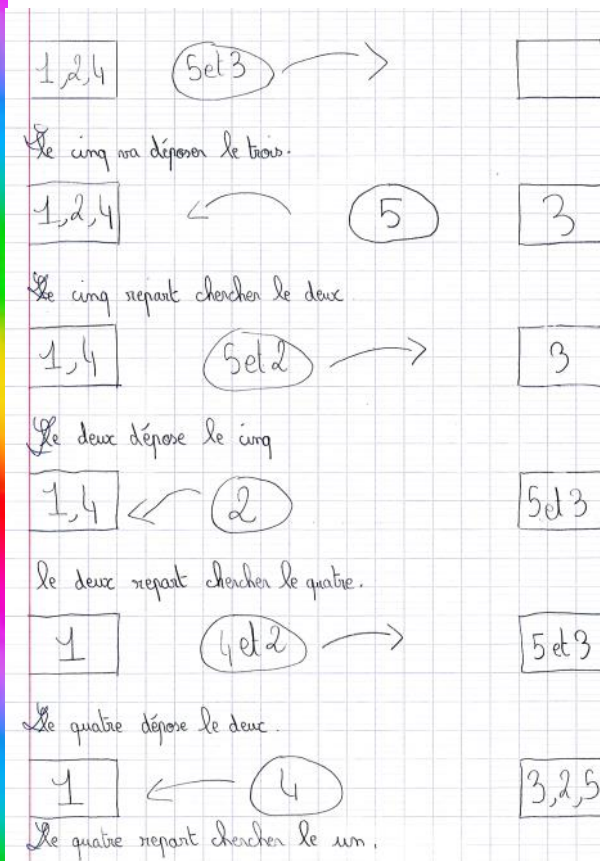 1,2,4 5et3
Le cinq va déposer le trois.
1,2,4 5 3
Le cinq repart chercher le deux.
1,4 5et2 3
Le deux dépose le cinq
1,4 2 5et3
le deux repart chercher le quatre.
1 4et2 5et3
Le quatre dépose le deux.
1 4 3,2,5
Le quatre repart chercher le un.